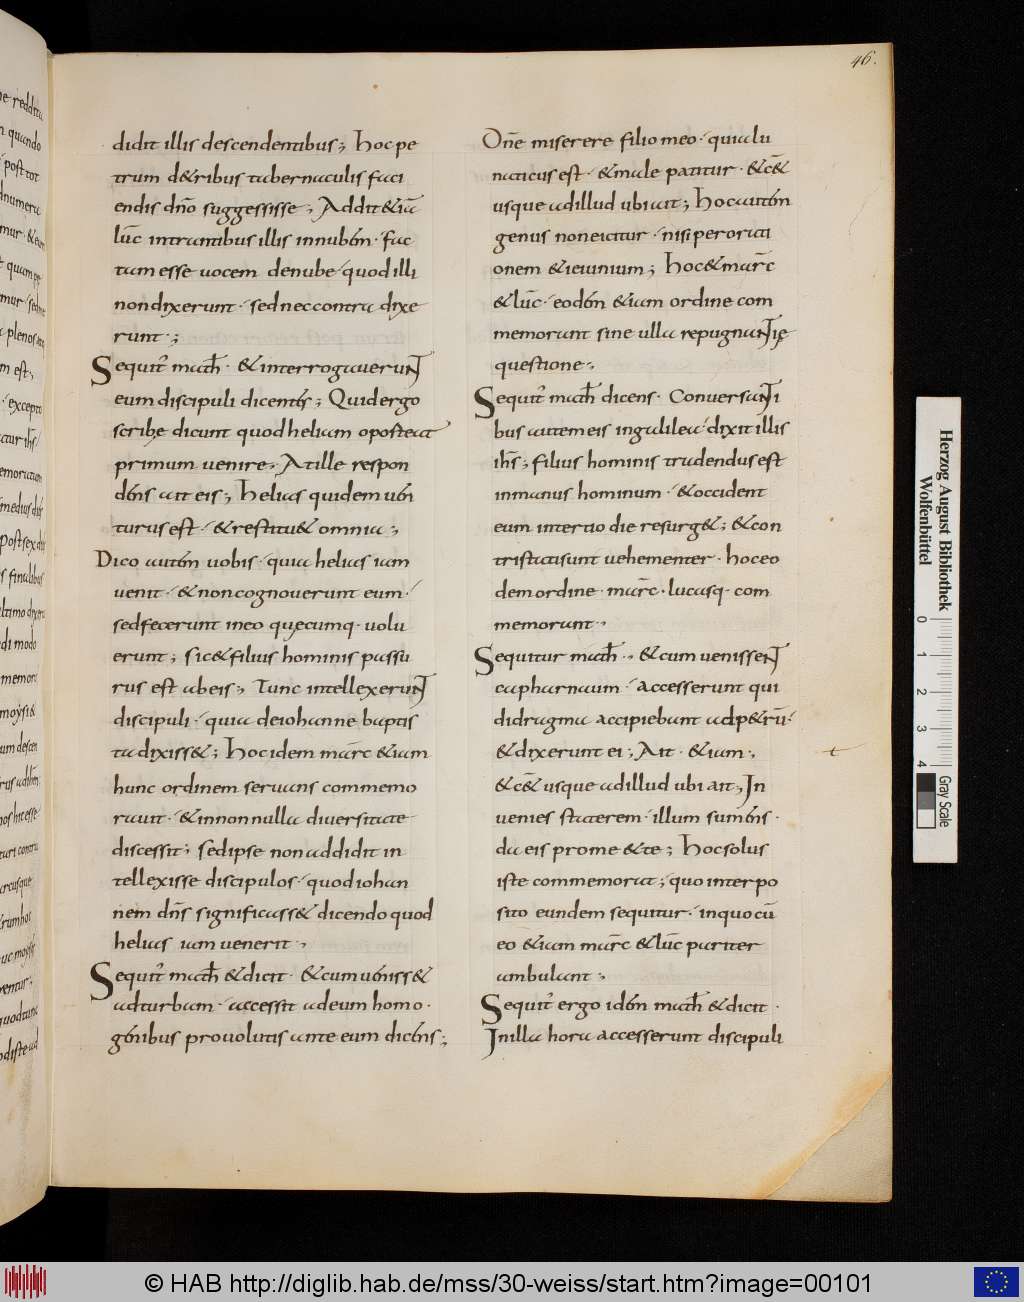 46.
didit illis descendentibus; hoc pe
trum d&ribus tabernaculis faci
endis dño suggessisse; Addit & iã
luc̄ intrantibus illis in nubem· fac
tam esse uocem de nube· quod illi
non dixerunt· sed nec contra dixe
runt·;
Sequit̄ math̄· & interrogauerunt
eum discipuli dicentes; Quid ergo
scribę dicunt quod heliam oposteat
primum uenire· At ille respon
dens ait eis; Helias quidem uen
turus est· & restitu& omnia·,
Dico autem uobis· quia helias iam
uenit· & non cognouerunt eum·
sed fecerunt in eo quęcumq· uolu
erunt; sic & filius hominis passu
rus est ab eis; Tunc intellexerunt
discipuli· quia de iohanne baptis
ta dixiss&; Hoc idem marc̄ & iam
hunc ordinem seruans commemo
rauit· & in non nulla diuersitate
discessit; sed ipse non addidit in
tellexisse discipulos· quod iohan
nem dn̄s significass& dicendo quod
helias iam uenerit·,
Sequit̄ math̄ & dicit· & cum ueniss&
ad turbam· accessit ad eum homo·
genibus prouolutis ante eum dicens;
Dn̄e miserere filio meo· quia lu
naticus est· & male patitur· & c&̄
usque ad illud ubi ait; Hoc autem
genus non eicitur· nisi per orati
onem & ieiunium; Hoc & marc̄
& luc̄· eodem & iam ordine com
memorant sine ulla repugnantię
questione·,
Sequit̄ math̄ dicens· Conuersanti
bus autem eis in galilea· dixit illis
ih̄s; filius hominis tradendus est
in manus hominum· & occident
eum in tertio die resurg&; & con
tristati sunt uehementer· hoc eo
dem ordine· marc̄· lucasq· com
memorant·,
Sequitur math̄·, & cum uenissent
capharnaum· accesserunt qui
didragma accipiebant ad p&rū·
& dixerunt ei; Ait· & iam·,
& c&̄ usque ad illud ubi ait; In
uenies staterem· illum sumens·
da eis pro me & te; Hoc solus
iste commemorat; quo interpo
sito eundem sequitur· in quo cū
eo & iam marc̄ & luc̄ pariter
ambulant·,
Sequit̄ ergo idem math̄ & dicit·
In illa hora accesserunt discipuli
Herzog August Bibliothek
Wolfenbüttel
0 1 2 3 4
Gray Scale
© HAB http://diglib.hab.de/mss/30-weiss/start.htm?image=00101